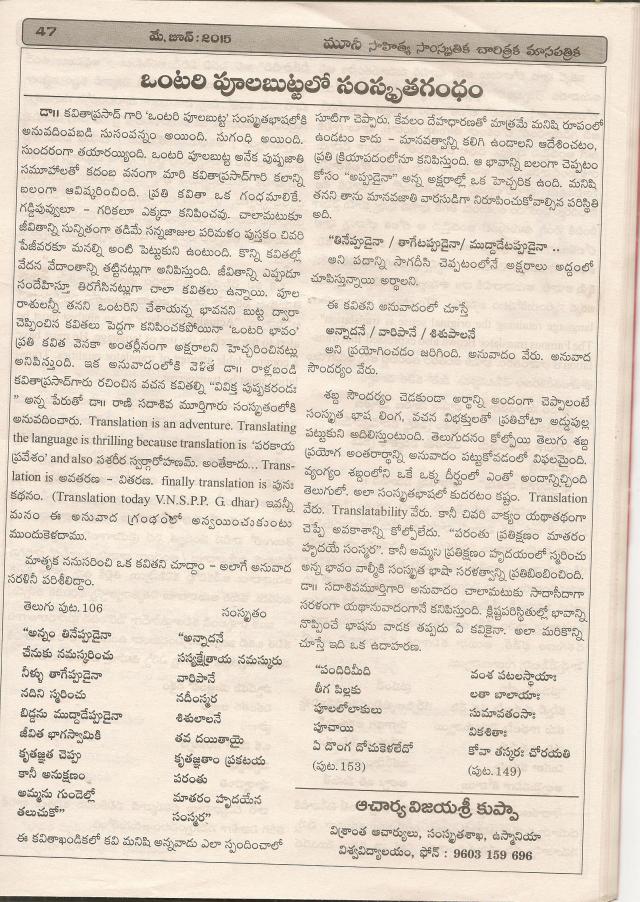 47
మే, జూన్ : 2015
మూసీ సాహిత్య సాంస్కృతిక చారిత్రక మాసపత్రిక
ఒంటరి పూలబుట్టలో సంస్కృతగంధం
డా॥ కవితాప్రసాద్ గారి 'ఒంటరి పూలబుట్ట' సంస్కృతభాషలోకి
అనువదింపబడి సుసంపన్నం అయింది. సుగంధి అయింది.
సుందరంగా తయారయ్యింది. ఒంటరి పూలబుట్ట అనేక పుష్పజాతి
సమూహాలతో కదంబ వనంగా మారి కవితాప్రసాద్‌గారి కలాన్ని
బలంగా ఆవిష్కరించింది. ప్రతి కవితా ఒక గంధమాలికే.
గడ్డిపువ్వులూ - గరికలూ ఎక్కడా కనిపించవు. చాలామటుకూ
జీవితాన్ని సున్నితంగా తడిమే సన్నజాజుల పరిమళం పుస్తకం చివరి
పేజీవరకూ మనల్ని అంటి పెట్టుకుని ఉంటుంది. కొన్ని కవితల్లో
వేదన వేదాంతాన్ని తట్టినట్లుగా అనిపిస్తుంది. జీవితాన్ని ఎప్పుడూ
సందేహిస్తూ తిరగేసినట్లుగా చాలా కవితలు ఉన్నాయి. పూల
రాశులన్నీ తనని ఒంటరిని చేశాయన్న భావనని బుట్ట ద్వారా
చెప్పించిన కవితలు పెద్దగా కనిపించకపోయినా 'ఒంటరి భావం'
ప్రతి కవిత వెనకా అంతర్లీనంగా అక్షరాలని హెచ్చరించినట్లు
అనిపిస్తుంది. ఇక అనువాదంలోకి వెళితే డా॥ రాళ్లబండి
కవితాప్రసాద్‌గారు రచించిన వచన కవితల్ని "వివిక్త పుష్పకరండః
" అన్న పేరుతో డా॥ రాణి సదాశివ మూర్తిగారు సంస్కృతంలోకి
అనువదించారు. Translation is an adventure. Translating
the language is thrilling because translation is 'పరకాయ
ప్రవేశం' and also సశరీర స్వర్గారోహణమ్. అంతేకాదు... Trans-
lation is అవతరణ - వితరణ. finally translation is పునః
కథనం. (Translation today V.N.S.P.P. G. dhar) ఇవన్నీ
మనం ఈ అనువాద గ్రంథంలో అన్వయించుకుంటు
ముందుకెళదాము.
మాతృక ననుసరించి ఒక కవితని చూద్దాం - అలాగే అనువాద
సరళినీ పరిశీలిద్దాం.
తెలుగు పుట. 106 సంస్కృతం
"అన్నం తినేప్పుడైనా "అన్నాదనే
చేనుకు నమస్కరించు సస్యక్షేత్రాయ నమస్కురు
నీళ్ళు తాగేప్పుడైనా వారిపానే
నదిని స్మరించు నదీంస్మర
బిడ్డను ముద్దాడేప్పుడైనా శిశులాలనే
జీవిత భాగస్వామికి తవ దయితాయై
కృతజ్ఞత చెప్పు కృతజ్ఞతాం ప్రకటయ
కానీ అనుక్షణం పరంతు
అమ్మను గుండెల్లో మాతరం హృదయేన
తలుచుకో" సంస్మర"
ఈ కవితాఖండికలో కవి మనిషి అన్నవాడు ఎలా స్పందించాలో
సూటిగా చెప్పారు. కేవలం దేహధారణతో మాత్రమే మనిషి రూపంలో
ఉండటం కాదు - మానవత్వాన్ని కలిగి ఉండాలని ఆదేశించటం,
ప్రతి క్రియాపదంలోనూ కనిపిస్తుంది. ఆ భావాన్ని బలంగా చెప్పటం
కోసం "అప్పుడైనా" అన్న అక్షరాల్లో ఒక హెచ్చరిక ఉంది. మనిషి
తనని తాను మానవజాతి వారసుడిగా నిరూపించుకోవాల్సిన పరిస్థితి
అది.
"తినేప్పుడైనా / తాగేటప్పుడైనా/ ముద్దాడేటప్పుడైనా ..
అని పదాన్ని సాగదీసి చెప్పటంలోనే అక్షరాలు అద్దంలో
చూపిస్తున్నాయి అర్థాలని.
ఈ కవితని అనువాదంలో చూస్తే
అన్నాదనే / వారిపానే / శిశుపాలనే
అని ప్రయోగించడం జరిగింది. అనువాదం వేరు. అనువాద
సౌందర్యం వేరు.
శబ్ద సౌందర్యం చెడకుండా అర్థాన్ని అందంగా చెప్పాలంటే
సంస్కృత భాష లింగ, వచన విభక్తులతో ప్రతిచోటా అద్దుపుల్ల
పట్టుకుని అదిలిస్తుంటుంది. తెలుగుదనం కోల్పోయి తెలుగు శబ్ద
ప్రయోగ అంతరార్థాన్ని అనువాదం పట్టుకోవడంలో విఫలమైంది.
వ్యంగ్యం శబ్దంలోని ఒకే ఒక్క దీర్ఘంలో ఎంతో అందాన్నిచ్చింది
తెలుగులో. అలా సంస్కృతభాషలో కుదరటం కష్టం. Translation
వేరు. Translatability వేరు. కానీ చివరి వాక్యం యథాతథంగా
చెప్పే అవకాశాన్ని కోల్పోలేదు. "పరంతు ప్రతిక్షణం మాతరం
హృదయే సంస్మర". కానీ అమ్మని ప్రతిక్షణం హృదయంలో స్మరించు
అన్న భావం వాల్మీకి సంస్కృత భాషా సరళత్వాన్ని ప్రతిబింబించింది.
డా॥ సదాశివమూర్తిగారి అనువాదం చాలామటుకు సాదాసీదాగా
సరళంగా యథానువాదంగానే కనిపిస్తుంది. క్లిష్టపరిస్థితుల్లో భావాన్ని
నొప్పించే భాషను వాడక తప్పదు ఏ కవికైనా. అలా మరికొన్ని
చూస్తే ఇది ఒక ఉదాహరణ.
"పందిరిమీది వంశ పటలస్థాయాః
తీగ పిల్లకు లతా బాలాయాః
పూలలోలాకులు సుమావతంసాః
పూచాయి వికశితాః
ఏ దొంగ దోచుకెళలేదో కోవా తస్కరః చోరయతి
(పుట.153) (పుట.149)
ఆచార్య విజయశ్రీ కుప్పా
విశ్రాంత ఆచార్యులు, సంస్కృతశాఖ, ఉస్మానియా
విశ్వవిద్యాలయం, ఫోన్ : 9603 159 696